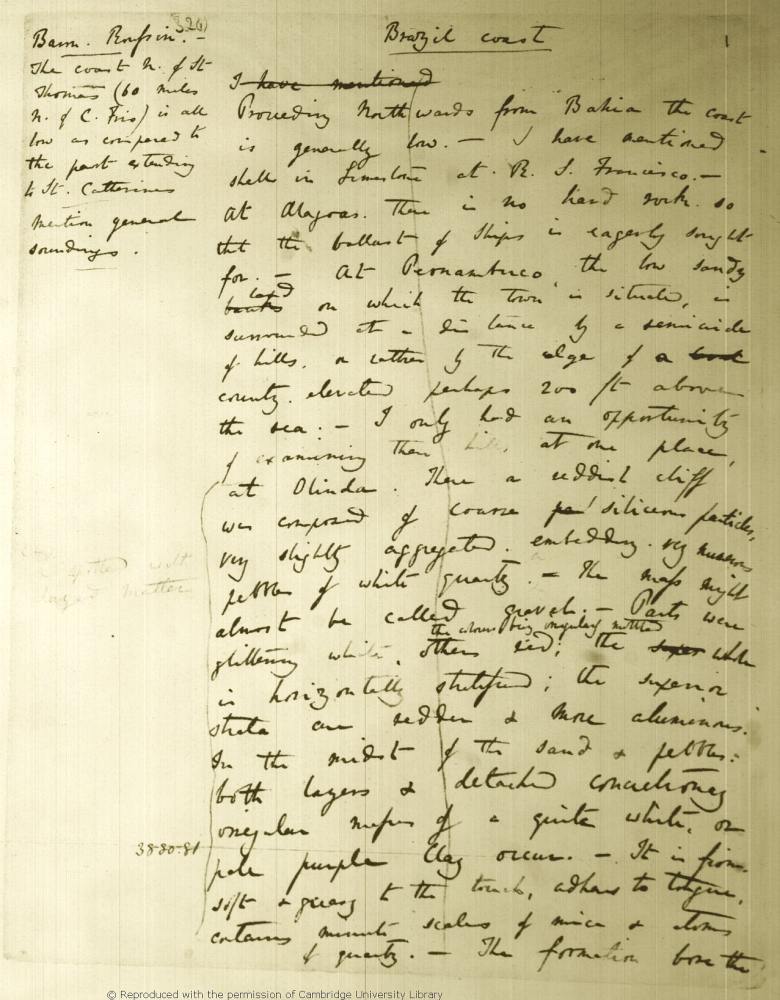 326)
Baron. Roussin. —
The coast N. of St
Thomas (60 miles
N. of C. Frio) is all
low as compared to
the part extending
to St. Catherines
Mention general
soundings.
Brazil coast
1
I have mentioned
Proceeding Northwards from Bahia the coast
is generally low. — I have mentioned
shells in Limestone at R. S. Francisco. —
At Alagoas. There is no hard rock. so
that the ballast of Ships is eagerly sought
for. — At Pernambuco the low sandy
land
banks on which the town is situated, is
surrounded at a distance by a semicircle
of hills, or rather by the edge of a
country elevated perhaps 200 ft above
the sea: — I only had an opportunity
of examining these hills at one place,
at Olinda. There a reddish cliff
was composed of coarse siliceous particles,
very slightly aggregated. embedding. very numerous
pebbles of white quartz. — The mass might
almost be called gravel. — Parts were
the colours being irregularly mottled
glittering white, others red; the whole
is horizontally stratified; the superior
strata are redder & more aluminous.
In the midst of the sand & pebbles:
both layers & detached concretionary
irregular masses of a quite white, or
3880-81
pale purple Clay occur. — It is firm
soft & greasy to the touch, adheres to tongue,
contains minute scales of mica & atoms
of quartz. — The formation bore the
© Reproduced with the permission of Cambridge University Library